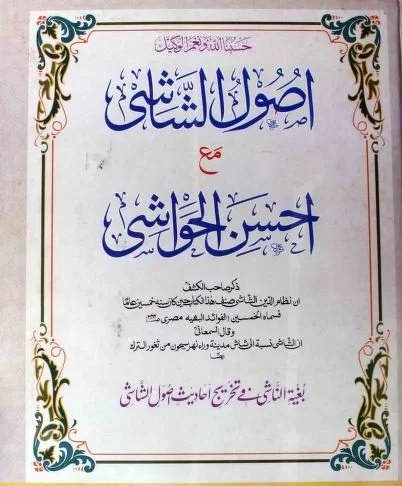 حسبنا الله ونعم الوكيل
اصول الشاشی
مع
احسن الحواشی
ذكر صاحب الكشف
ان نظام الدين الشاشی صنف هذا الكتاب حين كان سنه خمسين عاما
فسماه الخمسين (الفوائد البهيه مصری
وقال اسمعانی
ان الشاشی نسبة الی شاش مدينة وراء نهر سيحون من ثغور الترك
بغية الناشی فی تخريج احاديث اصول الشاشی